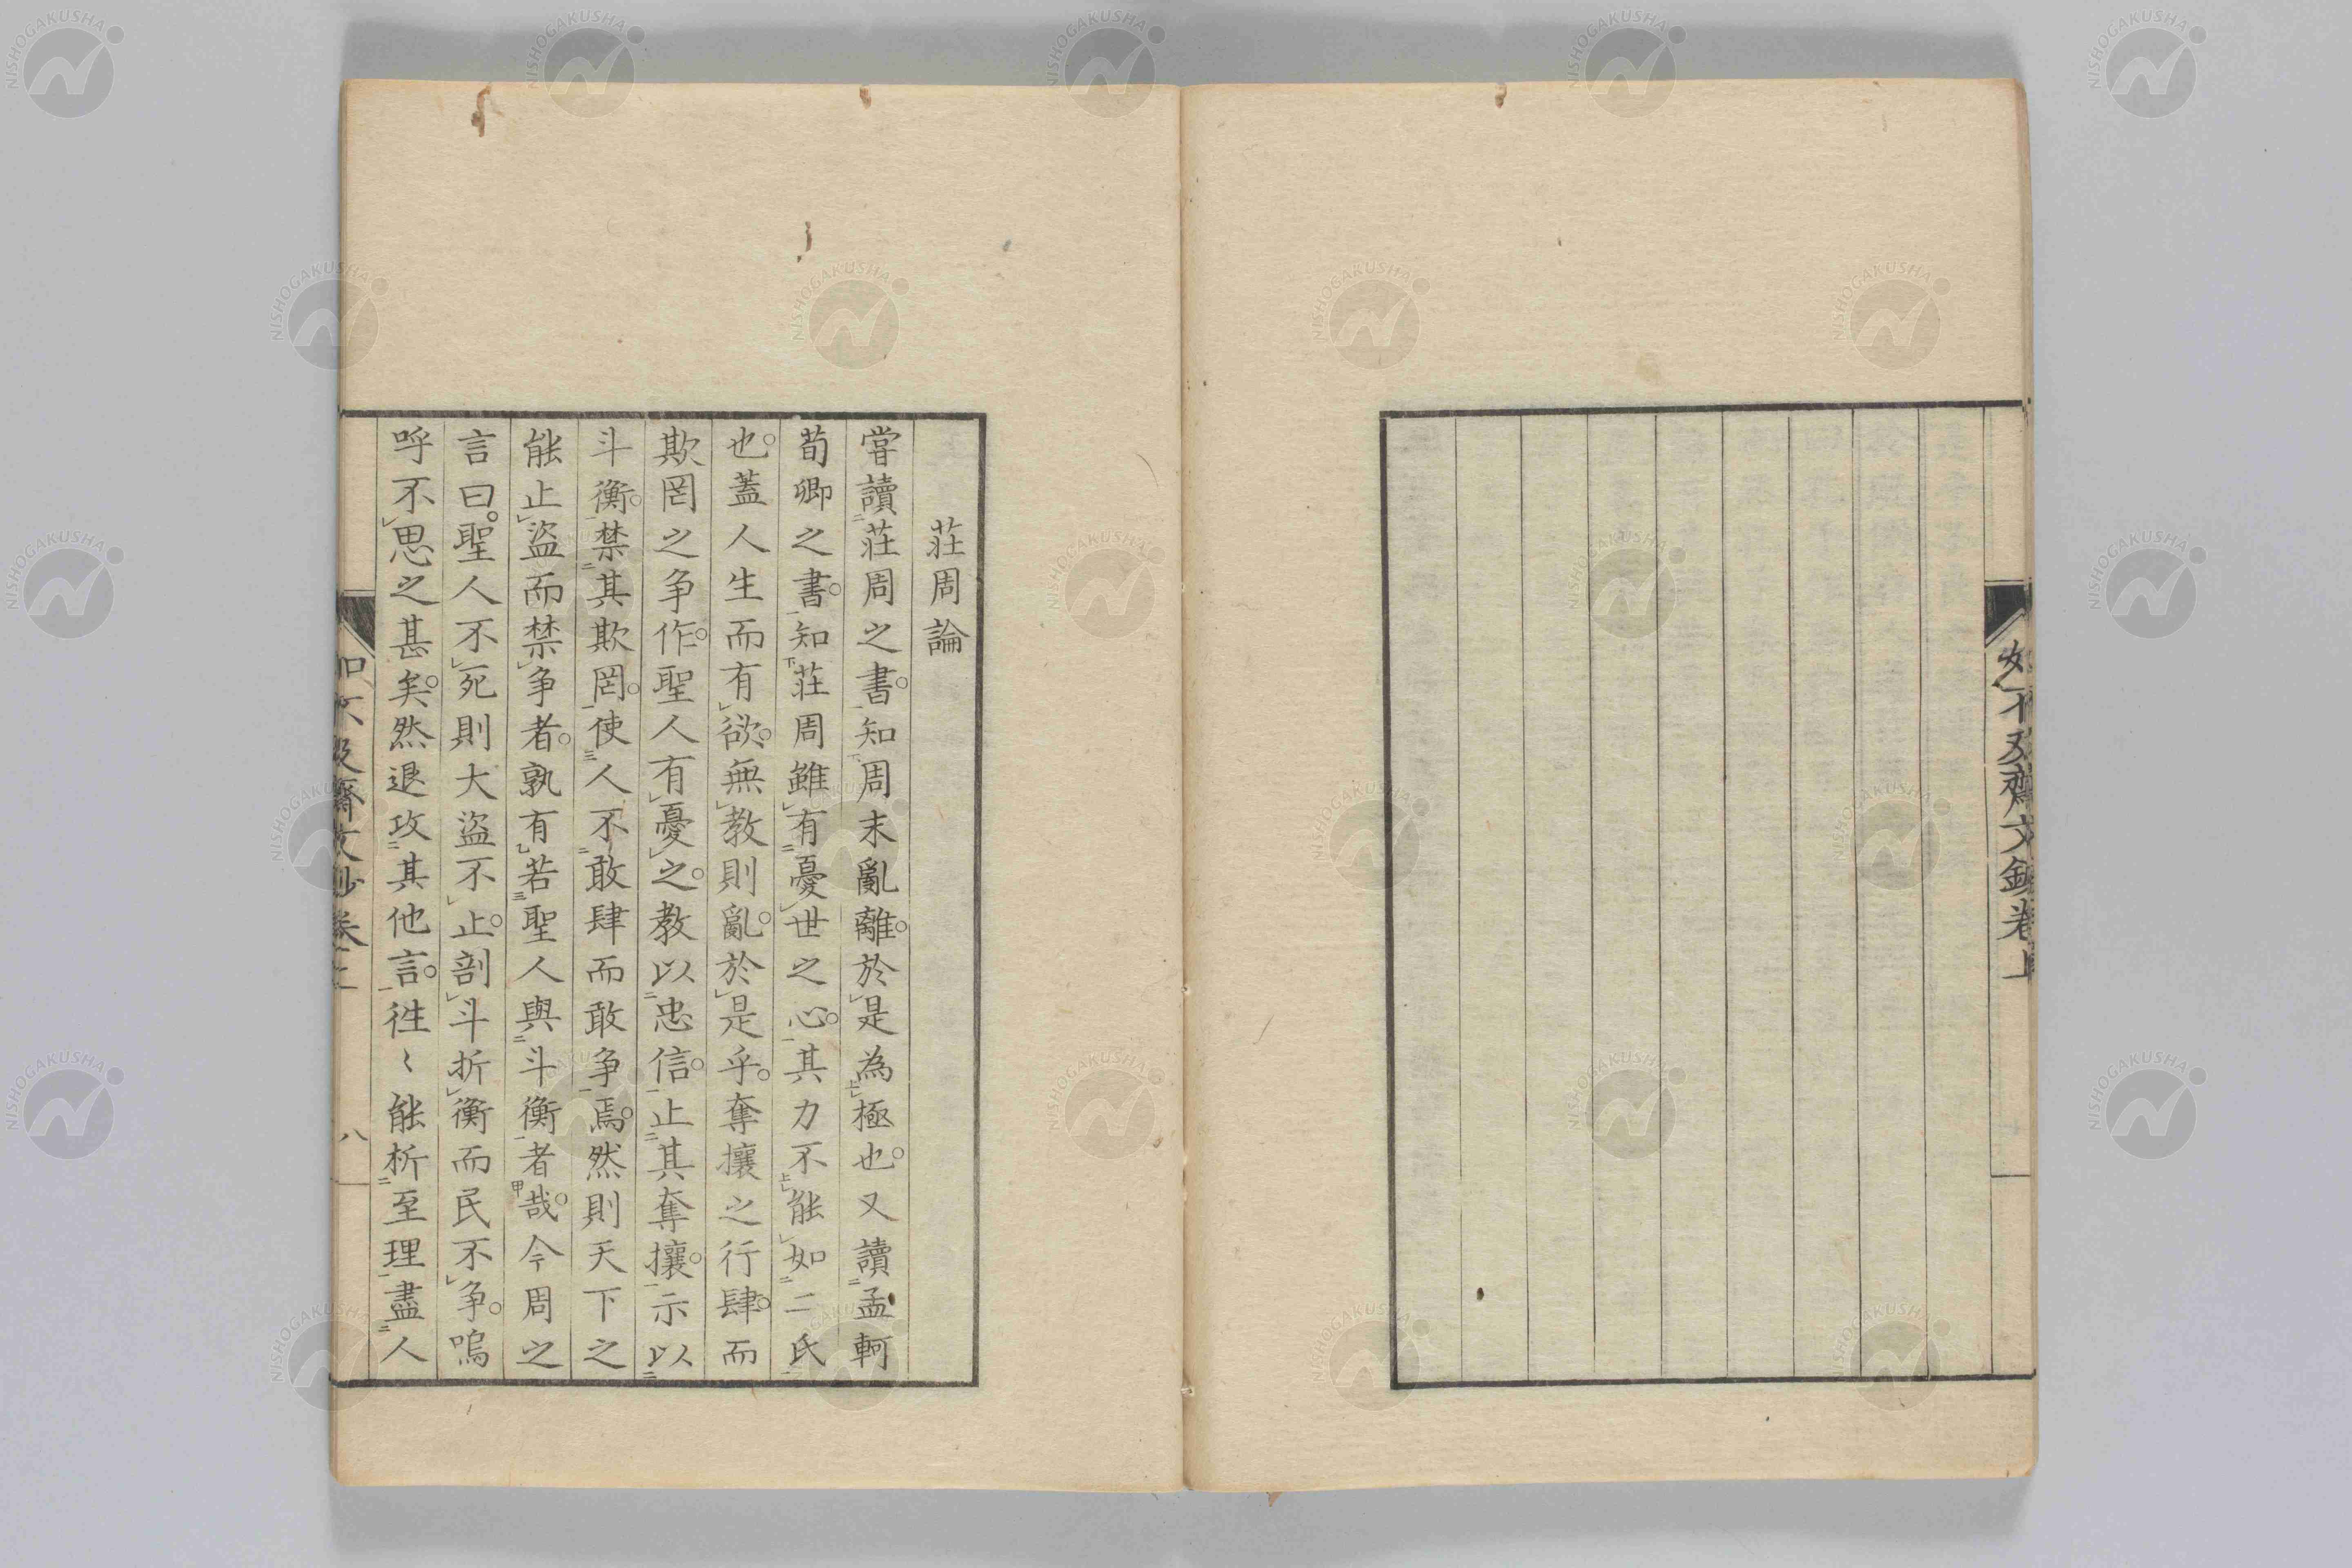 如不及齋文鈔卷上
莊周論
嘗讀莊周之書。知周末亂離。於是為極也。又讀孟軻
荀卿之書。知莊周雖有憂世之心。其力不能如二氏
也。蓋人生而有欲。無教則亂。於是乎。奪攘之行肆。而
欺罔之争作。聖人有憂之。教以忠信。止其奪攘。示以
斗衡。禁其欺罔。使人不敢肆而敢争焉。然則天下之
能止盜而禁争者。孰有若聖人與斗衡者哉。今周之
言曰。聖人不死則大盜不止。剖斗折衡而民不争。嗚
呼不思之甚矣。然退攻其他言。徃〻能析至理盡人
如不及齋文鈔卷之上 八
NISHOGAKUSHA